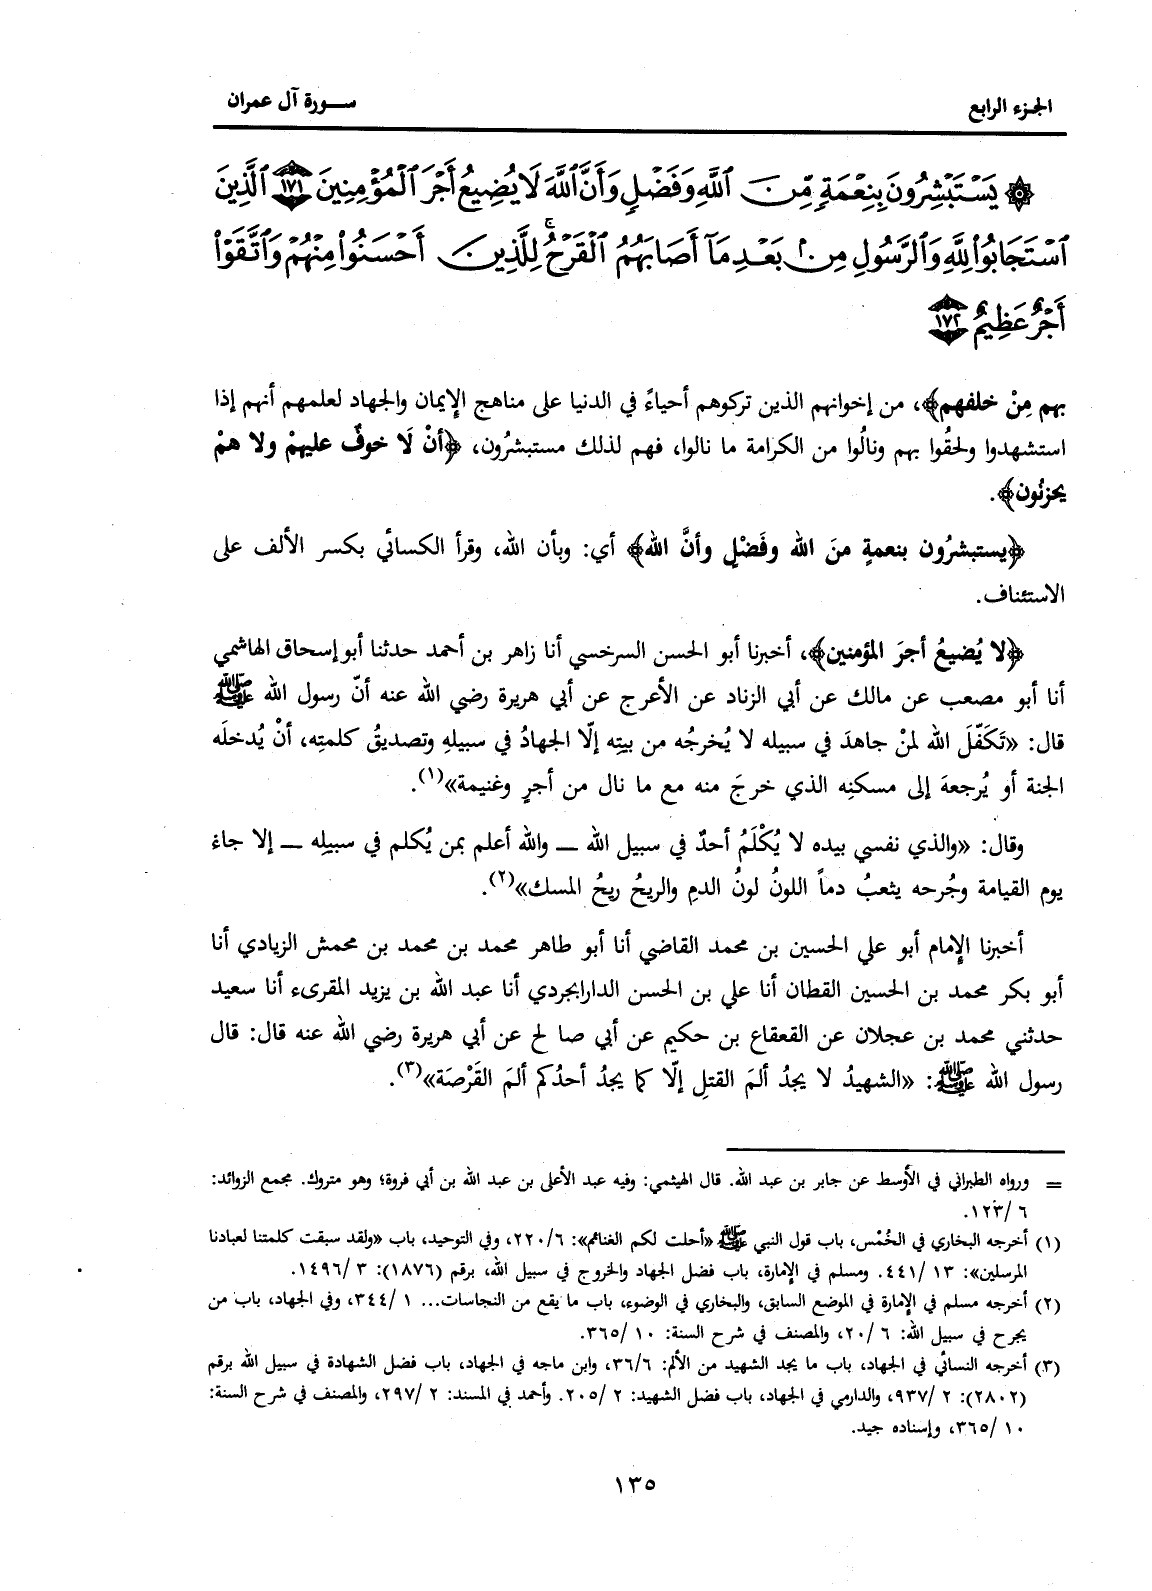 الجزء الرابع
سورة آل عمران
۞ يَسْتَبْشِرُونَ بِنِعْمَةٍ مِّنَ ٱللَّهِ وَفَضْلٍ وَأَنَّ ٱللَّهَ لَا يُضِيعُ أَجْرَ ٱلْمُؤْمِنِينَ ١٧١ ٱلَّذِينَ
ٱسْتَجَابُوا۟ لِلَّهِ وَٱلرَّسُولِ مِنۢ بَعْدِ مَآ أَصَابَهُمُ ٱلْقَرْحُ ۚ لِلَّذِينَ أَحْسَنُوا۟ مِنْهُمْ وَٱتَّقَوْا۟
أَجْرٌ عَظِيمٌ ١٧٢
بهم مِنْ خلفهم﴾، من إخوانهم الذين تركوهم أحياءً في الدنيا على مناهج الإيمان والجهاد لعلمهم أنهم إذا
استشهدوا ولحقُوا بهم ونالُوا من الكرامة ما نالوا، فهم لذلك مستبشرُون، ﴿أنْ لَا خوفٌ عليهمْ ولا همْ
يحزنُون﴾.
﴿يستبشرُون بنعمةٍ منَ الله وفَضْلٍ وأنَّ الله﴾ أي: وبأن الله، وقرأ الكسائي بكسر الألف على
الاستئناف.
﴿لا يُضيعُ أجرَ المؤمنين﴾، أخبرنا أبو الحسن السرخسي أنا زاهر بن أحمد حدثنا أبو إسحاق الهاشمي
أنا أبو مصعب عن مالك عن أبي الزناد عن الأعرج عن أبي هريرة رضي الله عنه أنّ رسول الله ﷺ
قال: «تَكَفّلَ الله لمنْ جاهدَ في سبيله لا يُخرجُه من بيتِه إلّا الجهادُ في سبيلهِ وتصديقُ كلمتِه، أنْ يُدخلَه
الجنة أو يُرجعهَ إلى مسكنِه الذي خرجَ منه مع ما نال من أجرٍ وغنيمة»(١).
وقال: «والذي نفسي بيده لا يُكْلَمُ أحدٌ في سبيل الله ــ والله أعلم بمن يُكلم في سبيلِه ــ إلا جاءَ
يوم القيامة وجُرحه يثعبُ دماً اللونُ لونُ الدمِ والريحُ ريحُ المسك»(٢).
أخبرنا الإمام أبو علي الحسين بن محمد القاضي أنا أبو طاهر محمد بن محمد بن محمش الزيادي أنا
أبو بكر محمد بن الحسين القطان أنا علي بن الحسن الدارابجردي أنا عبد الله بن يزيد المقرىء أنا سعيد
حدثني محمد بن عجلان عن القعقاع بن حكيم عن أبي صالح عن أبي هريرة رضي الله عنه قال: قال
رسول الله ﷺ: «الشهيدُ لا يجدُ ألمَ القتلِ إلّا كما يجدُ أحدُكم ألمَ القَرْصَة»(٣).
= ورواه الطبراني في الأوسط عن جابر بن عبد الله. قال الهيثمي: وفيه عبد الأعلى بن عبد الله بن أبي فروة؛ وهو متروك. مجمع الزوائد:
٦ /١٢٣.
(١) أخرجه البخاري في الخُمْس، باب قول النبي ﷺ «أحلت لكم الغنائم»: ٢٢٠/٦، وفي التوحيد، باب «ولقد سبقت كلمتنا لعبادنا
المرسلين»: ١٣ /٤٤١. ومسلم في الإمارة، باب فضل الجهاد والخروج في سبيل الله، برقم (١٨٧٦): ٣ /١٤٩٦.
(٢) أخرجه مسلم في الإمارة في الموضع السابق، والبخاري في الوضوء، باب ما يقع من النجاسات... ١ /٣٤٤، وفي الجهاد، باب من
يجرح في سبيل الله: ٦ /٢٠، والمصنف في شرح السنة: ١٠ /٣٦٥.
(٣) أخرجه النسائي في الجهاد، باب ما يجد الشهيد من الألم: ٣٦/٦، وابن ماجه في الجهاد، باب فضل الشهادة في سبيل الله برقم
(٢٨٠٢): ٢ /٩٣٧، والدارمي في الجهاد، باب فضل الشهيد: ٢ /٢٠٥. وأحمد في المسند: ٢ /٢٩٧، والمصنف في شرح السنة:
١٠ /٣٦٥، وإسناده جيد.
١٣٥